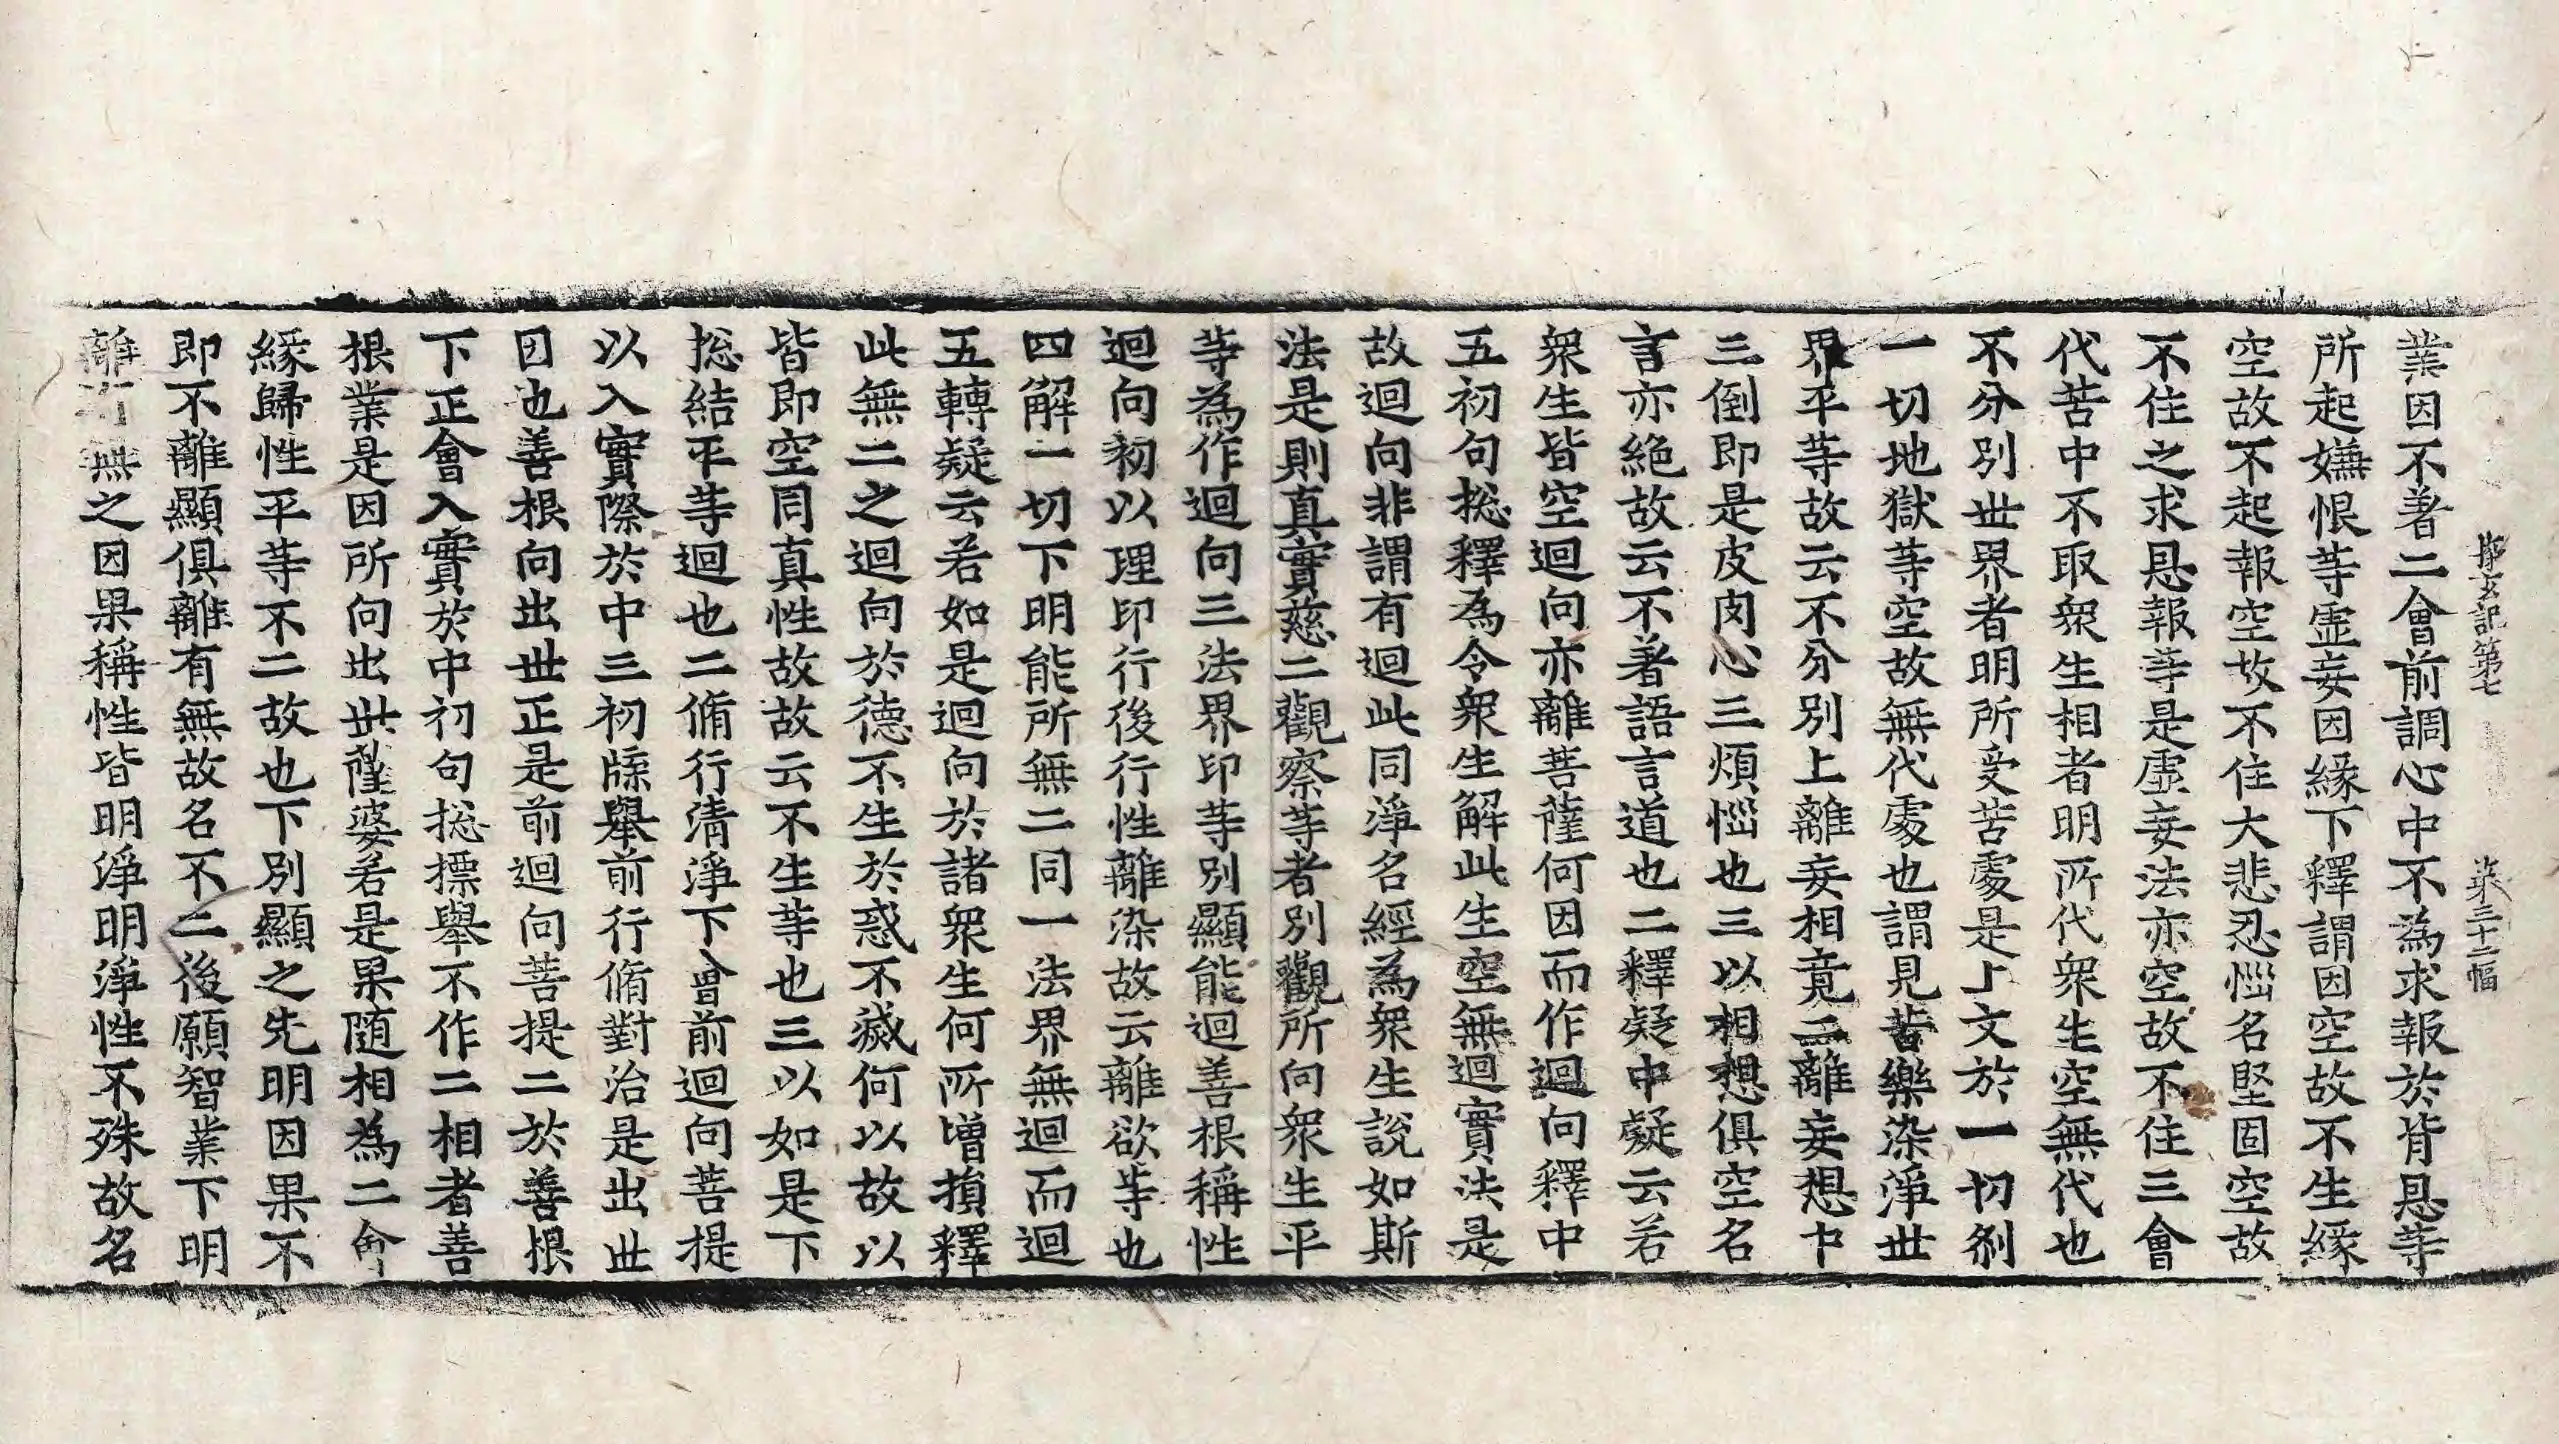 探玄記第七 第三十二幅
業因不著二會前調心中不為求報於背恩等
所起嫌恨等虛妄因緣下釋謂因空故不生緣
空故不起報空故不住大悲忍惱名堅固空故
不住之求恩報等是虛妄法亦空故不住三會
代苦中不取衆生相者明所代衆生空無代也
不分別世界者明所受苦處是上文於一切刹
一切地獄等空故無代處也謂見苦樂染淨世
界平等故云不分別上離妄相竟二離妄想中
三倒即是皮肉心三煩惱也三以相想俱空名
言亦絶故云不著語言道也二釋疑中疑云若
衆生皆空迴向亦離菩薩何因而作迴向釋中
五初句捴釋為令衆生解此生空無迴實法是
故迴向非謂有迴此同淨名經為衆生說如斯
法是則真實慈二觀察等者別觀所向衆生平
等為作迴向三法界印等別顯能迴善根稱性
迴向初以理印行後行性離染故云離欲等也
四解一切下明能所無二同一法界無迴而迴
五轉疑云若如是迴向於諸衆生何所增損釋
此無二之迴向於德不生於惑不滅何以故以
皆即空同真性故故云不生等也三以如是下
捴結平等迴也二脩行清淨下會前迴向菩提
以入實際於中三初牒舉前行脩對治是出世
因也善根向出世正是前迴向菩提二於善根
下正會入實於中初句捴摽舉不作二相者善
根業是因所向出世薩婆若是果隨相為二會
緣歸性平等不二故也下別顯之先明因果不
即不離顯俱離有無故名不二後願智業下明
離有無之因果稱性皆明淨明淨性不殊故名